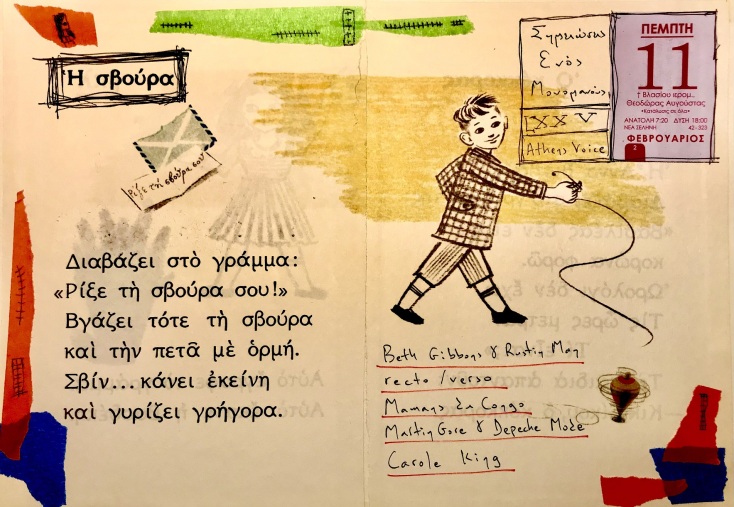 Ἡ σβούρα
Ρίξε τὴ σβούρα σου!
Διαβάζει στὸ γράμμα:
«Ρίξε τὴ σβούρα σου!»
Βγάζει τότε τὴ σβούρα
καὶ τὴν πετᾶ μὲ ὁρμή.
Σβίν... κάνει ἐκείνη
καὶ γυρίζει γρήγορα.
Σημειώσεις
Ενός
Μονομανούς
LXXV
Athens Voice
ΠΕΜΠΤΗ
11
† Βλασίου ιερομ.,
Θεοδώρας Αυγούστας
«Κατάλυσις σε όλα»
ΑΝΑΤΟΛΗ 7:20 ΔΥΣΗ 18:00
ΝΕΑ ΣΕΛΗΝΗ 42-323
ΦΕΒΡΟΥΑΡΙΟΣ
2
Beth Gibbons & Rustin Man
recto/verso
Mamans du Congo
Martin Gore & Depeche Mode
Carole King